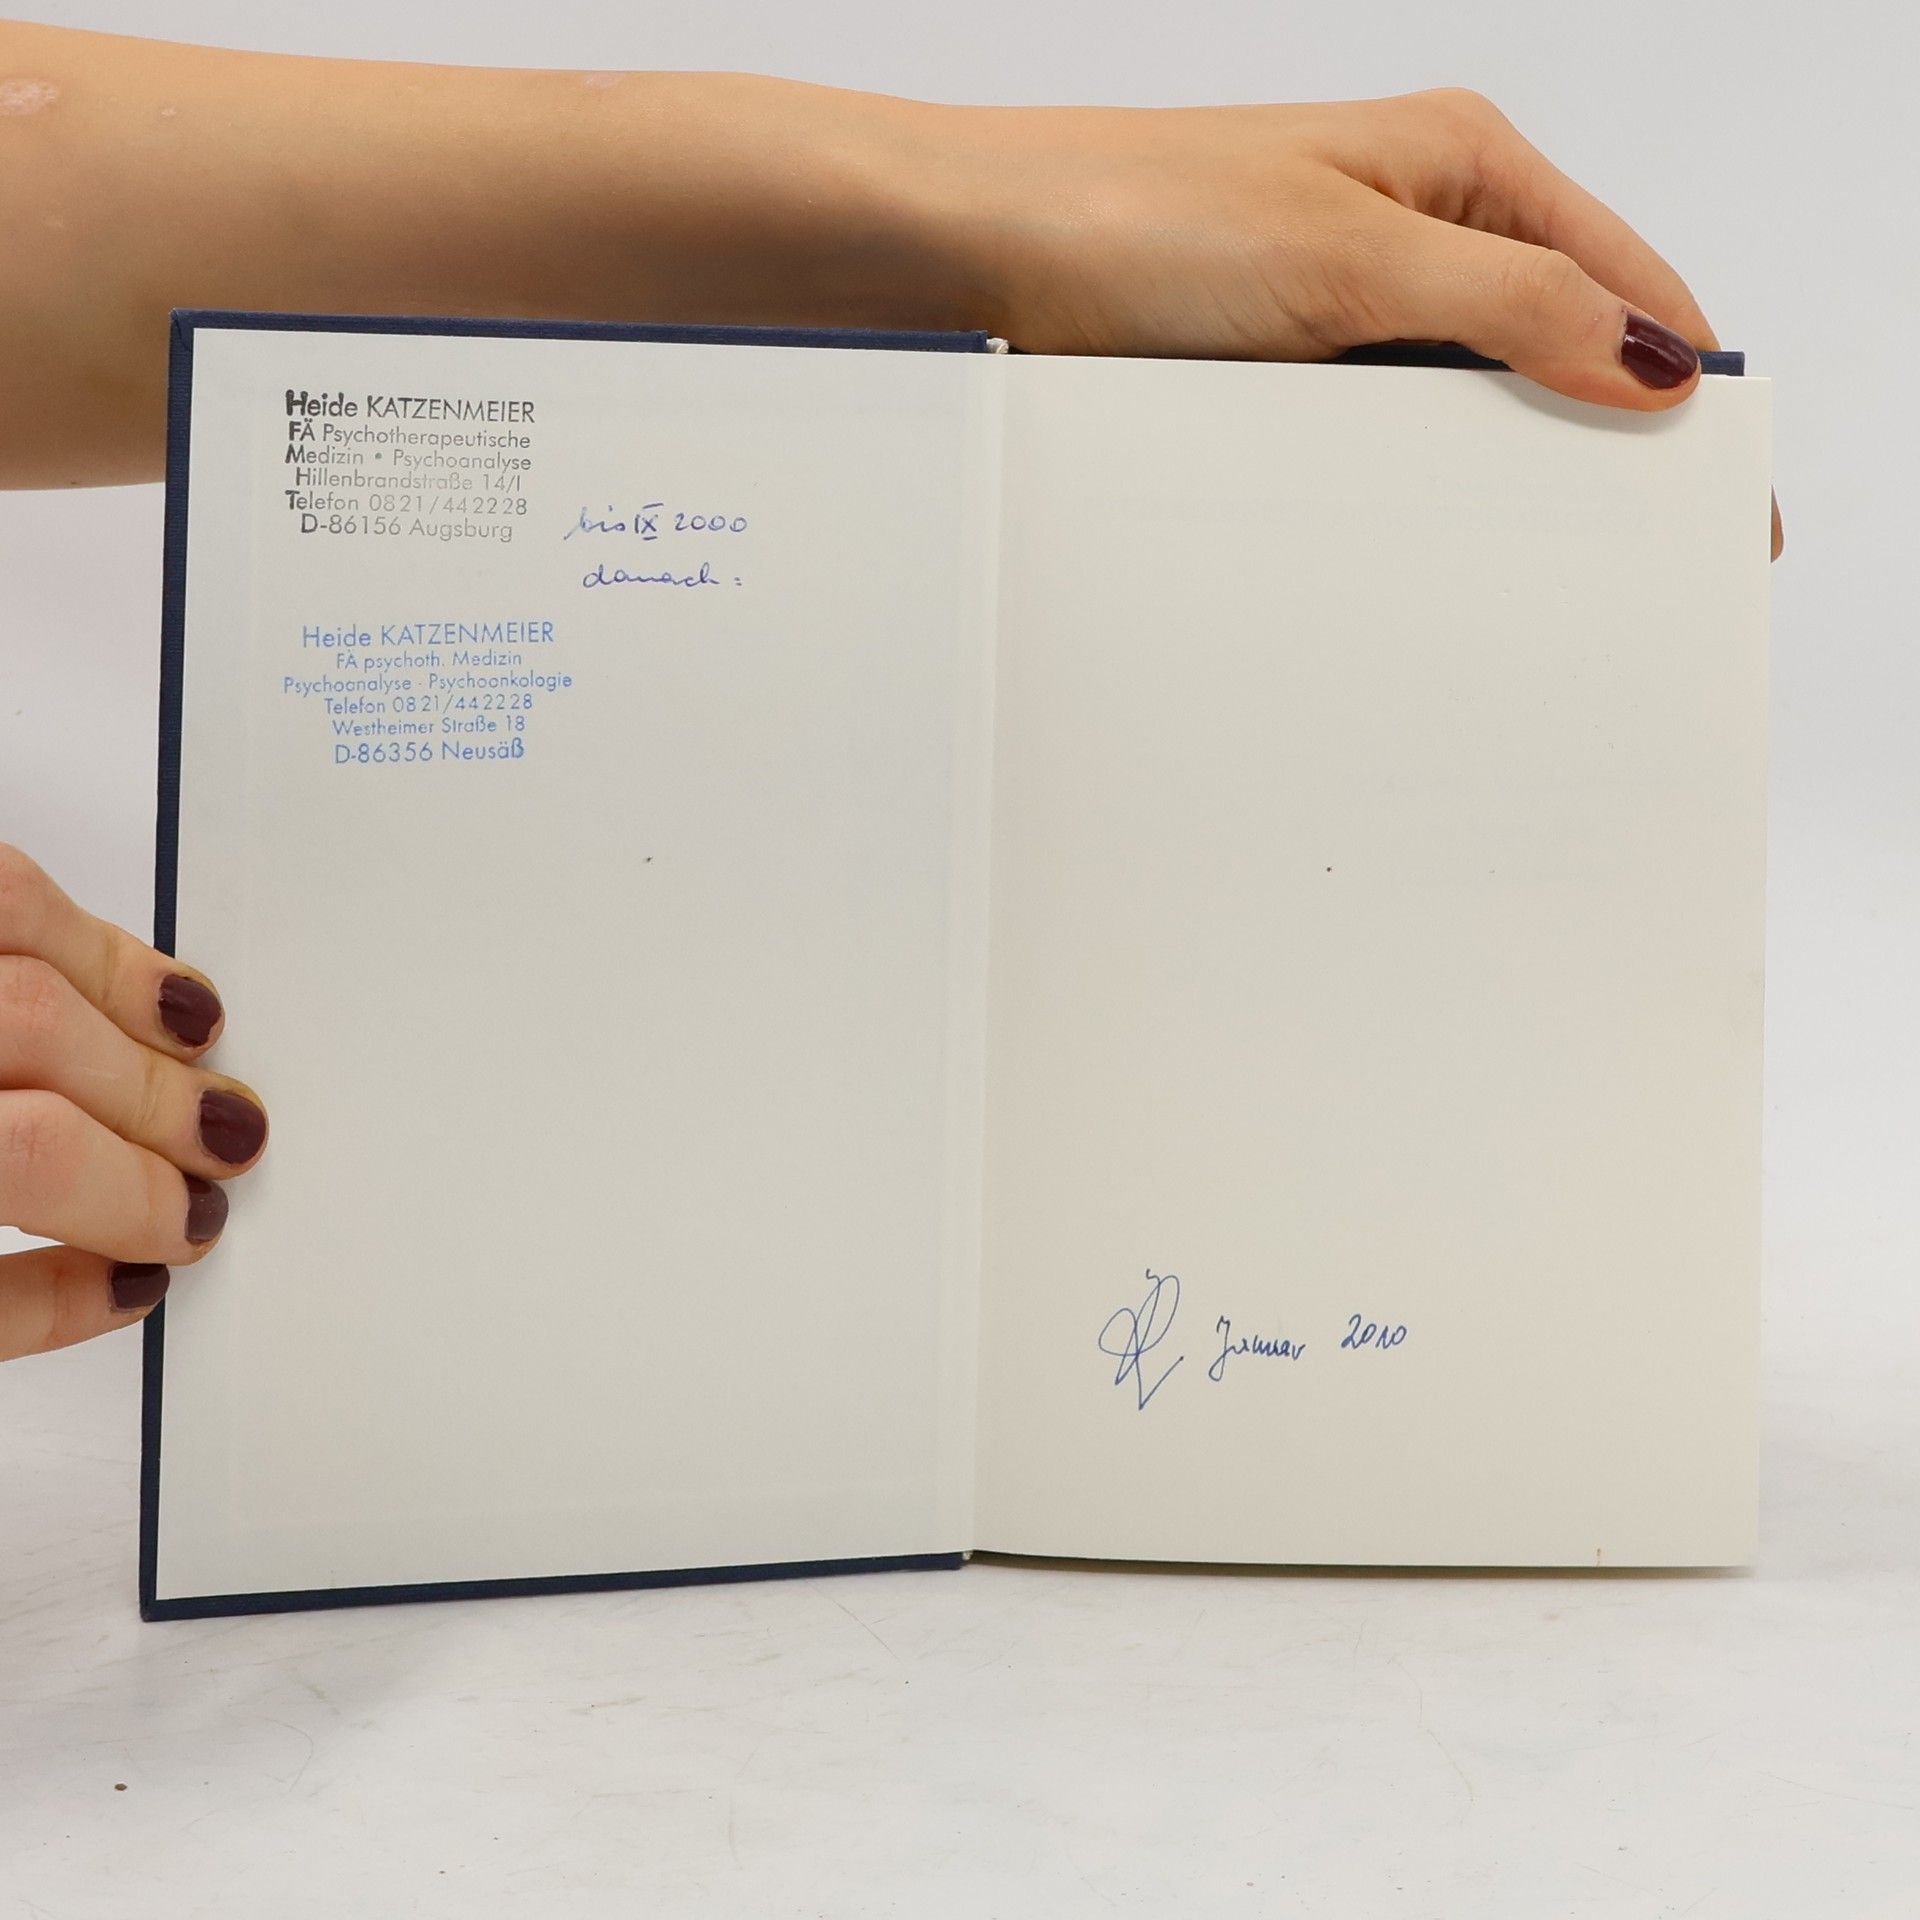 Heide KATZENMEIER
FÄ Psychotherapeutische
Medizin • Psychoanalyse
Hillenbrandstraße 14/I
Telefon 0821/442228
D-86156 Augsburg
bis IX 2000
danach:
Heide KATZENMEIER
FÄ psychoth. Medizin
Psychoanalyse - Psychoonkologie
Telefon 0821/442228
Westheimer Straße 18
D-86356 Neusäß
Januar 2010